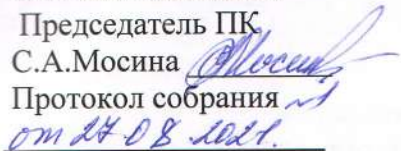 Председатель ПК
С.А.Мосина
Протокол собрания №1
от 27.08.2021.